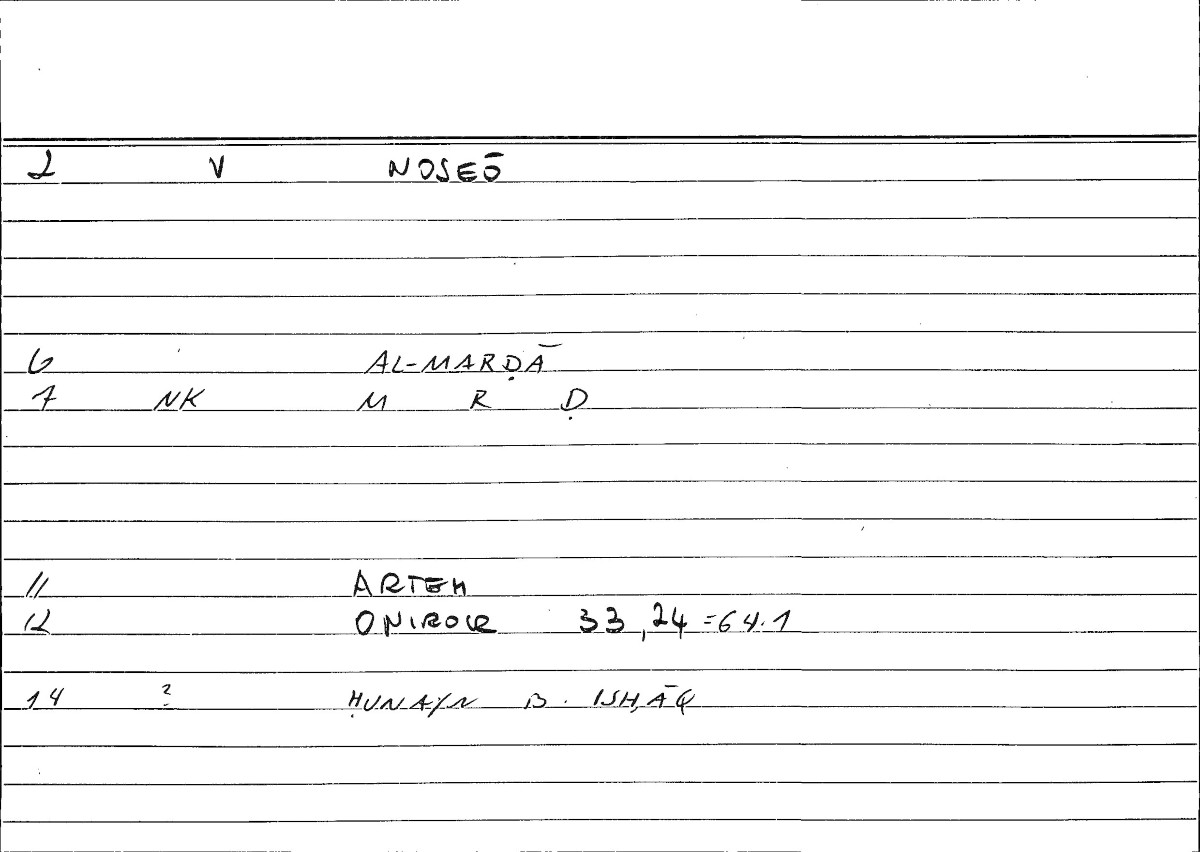 2 V NOSEŌ
6 AL-MARḌĀ
7 NK M R Ḍ
11 ARTEM
12 ONIROCR 33,24 = 64.1
14 ? ḤUNAYN B. ISḤĀQ